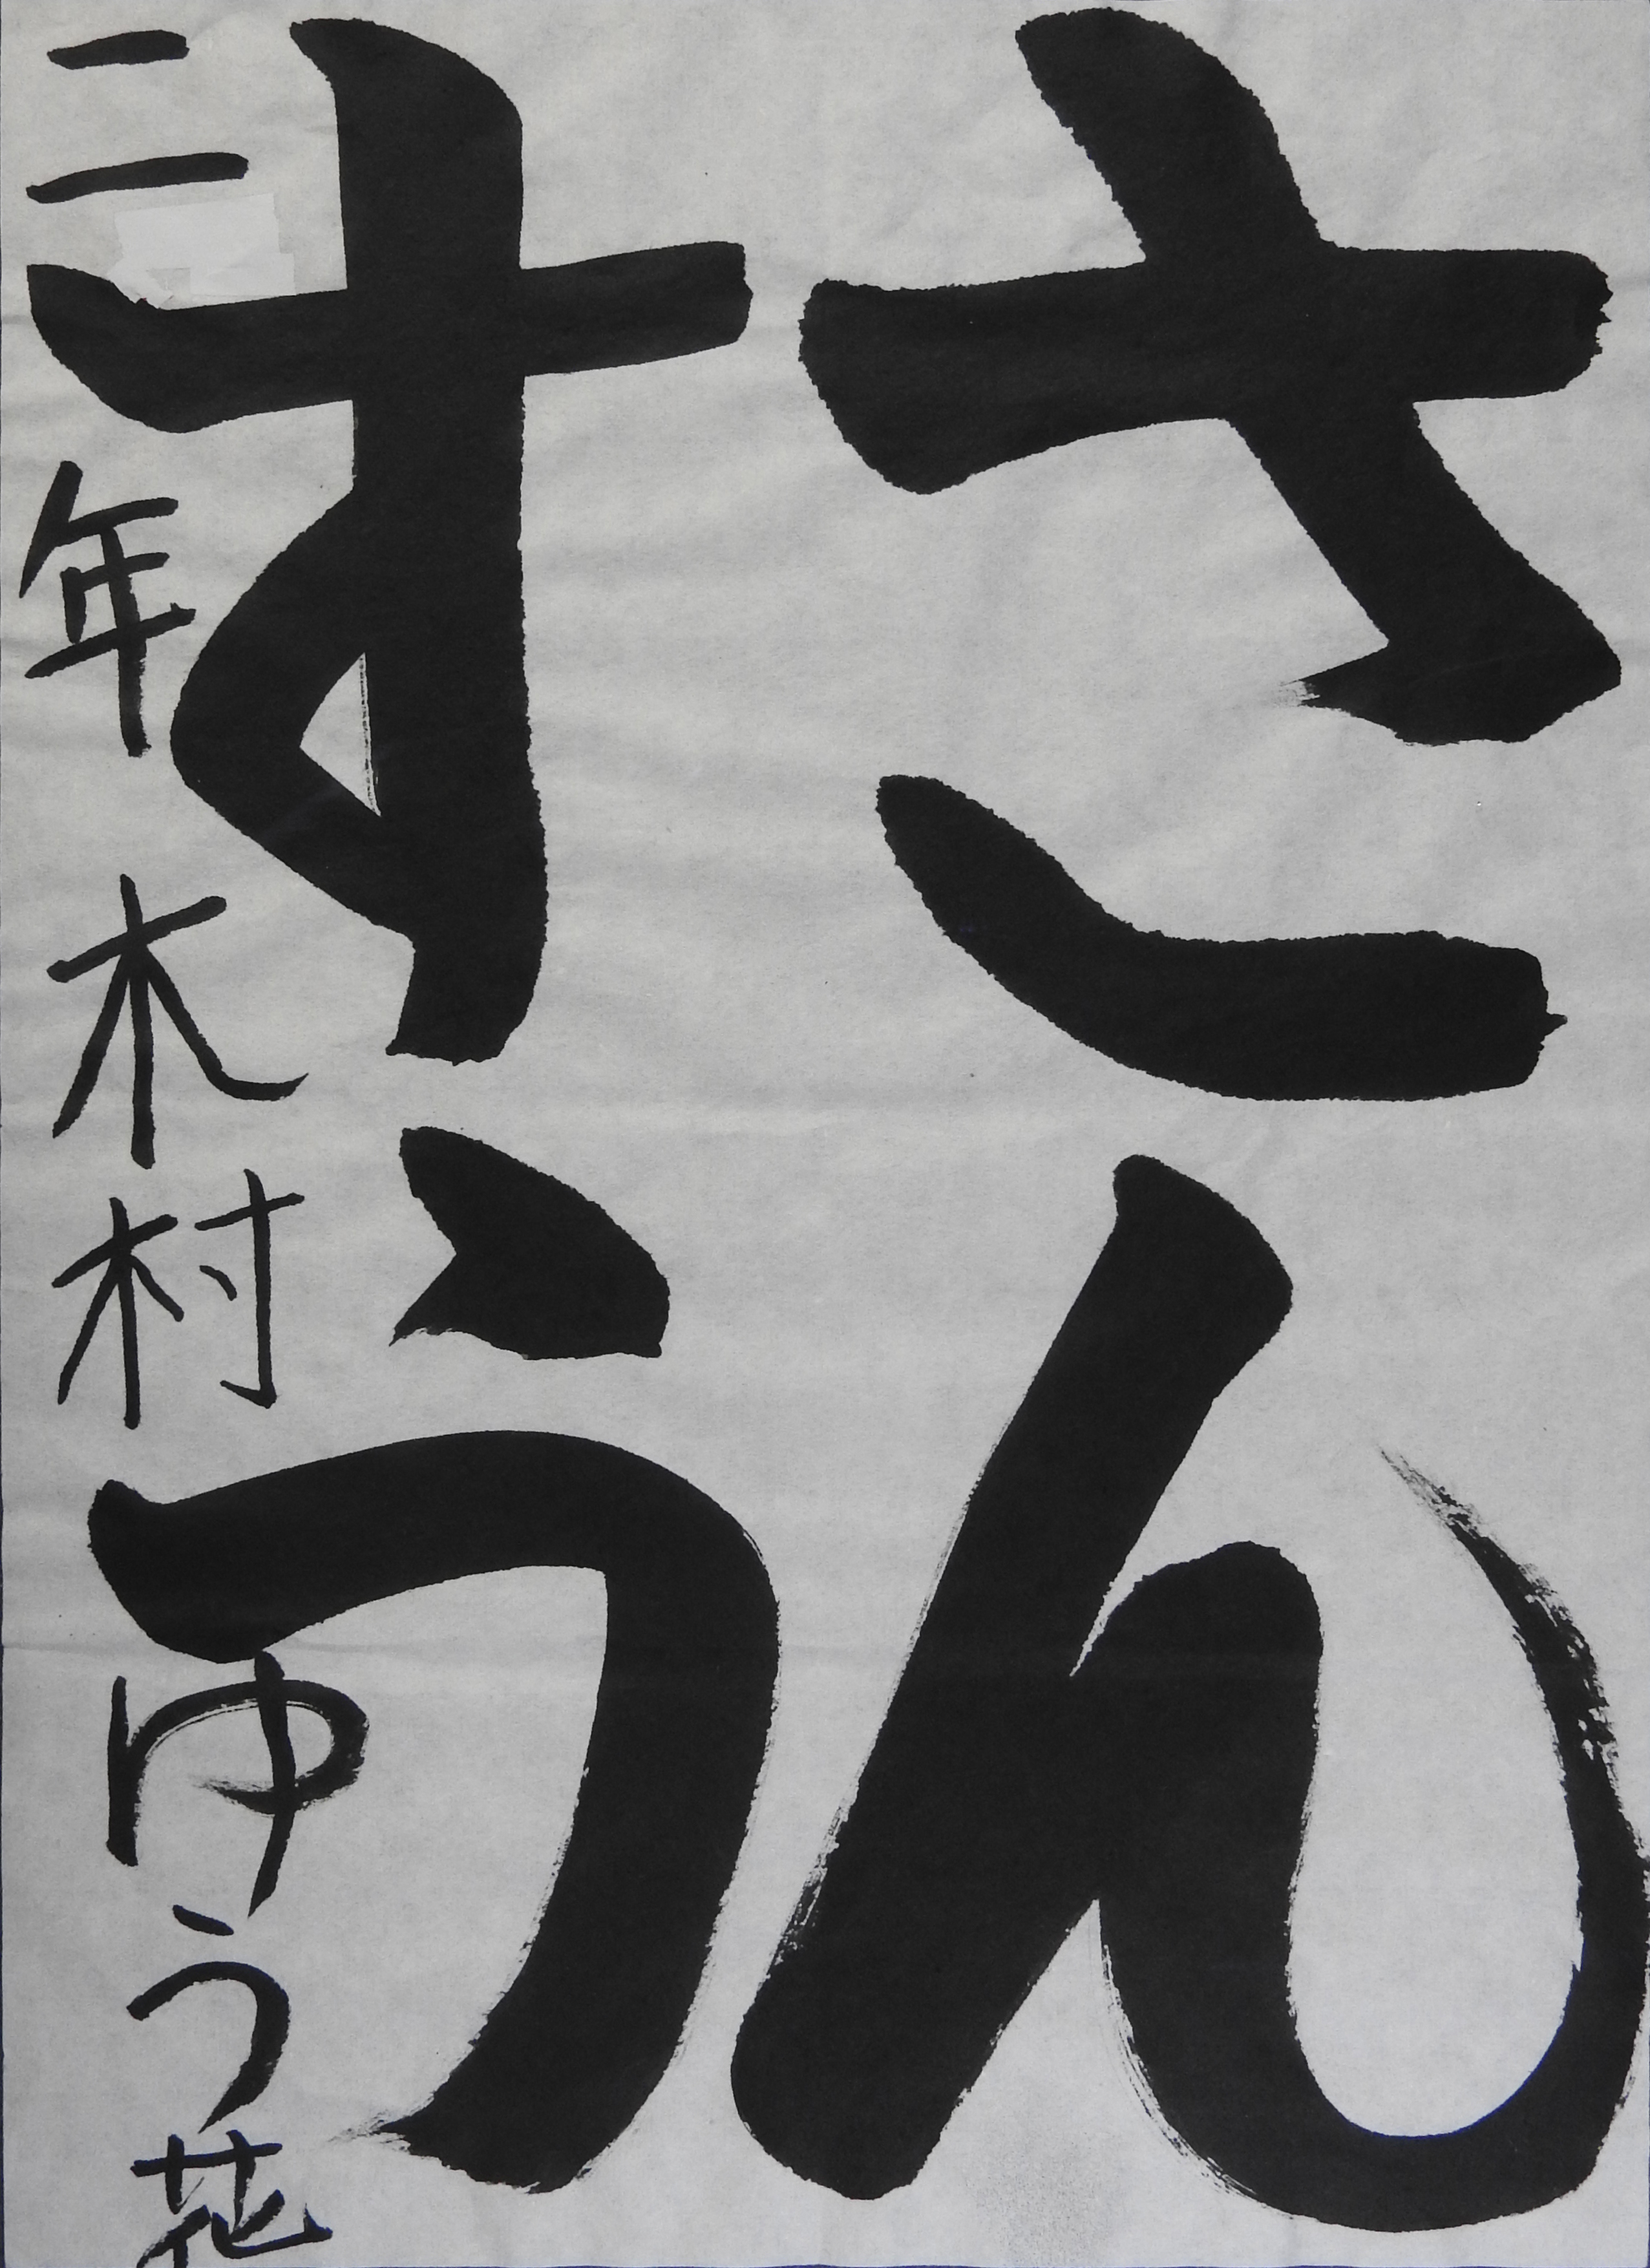 さん
すう
二年木村ゆう花